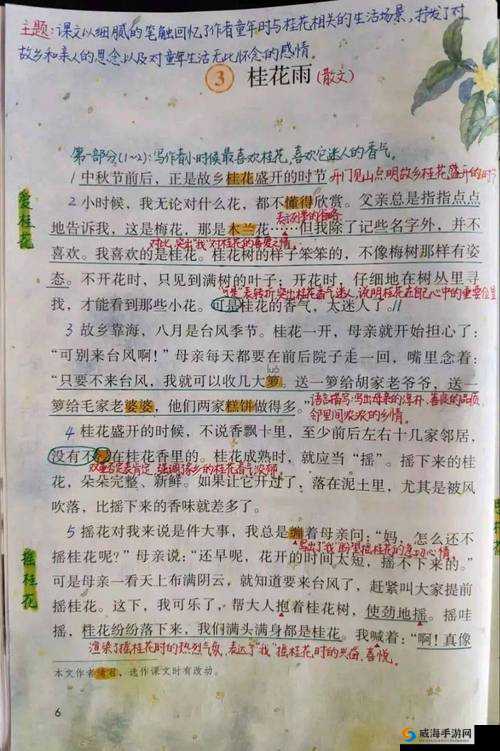 主题：课文以细腻的笔触回忆了作者童年时与桂花相关的生活场景，抒发了对
故乡和亲人的思念以及对童年生活无比怀念的感情。
3 桂花雨(散文)
第一部分(1~2)：写作者小时候最喜欢桂花，喜欢它迷人的香气。
爱桂花
1 中秋节前后，正是故乡桂花盛开的时节
开门见山点明故乡桂花盛开的时节
2 小时候，我无论对什么花，都不懂得欣赏。父亲总是指指点点
表示列举的省略
地告诉我，这是梅花，那是木兰花……但我除了记些名字外，并不
对比，突出“我”对桂花的喜爱之情。
喜欢。我喜欢的是桂花。桂花树的样子笨笨的，不像梅树那样有姿
态。不开花时，只见到满树的叶子；开花时，仔细地在树丛里寻
“可是”表转折，突出桂花香气迷人，说明桂花在自己心中的重要位置
找，才能看到那些小花。可是桂花的香气，太迷人了。
3 故乡靠海，八月是台风季节。桂花一开，母亲就开始担心了：
“可别来台风啊！”母亲每天都要在前后院子走一回，嘴里念着：
luó
“只要不来台风，我就可以收几大箩，送一箩给胡家老爷爷，送一
箩给毛家老婆婆，他们两家糕饼做得多。”
语言描写：写出母亲的淳朴、善良的品质，
邻里间浓浓的乡情。
4 桂花盛开的时候，不说香飘十里，至少前后左右十几家邻居，
没有不浸在桂花香里的。桂花成熟时，就应当“摇”。摇下来的桂
双重否定表肯定，强调故乡的桂花香气浓郁
花，朵朵完整、新鲜。如果让它开过了，落在泥土里，尤其是被风
吹落，比摇下来的香味就差多了。
摇桂花
5 摇花对我来说是件大事，我总是缠着母亲问：“妈，怎么还不
写出了“我”盼望摇桂花的急切心情
摇桂花呢？”母亲说：“还早呢，花开的时间太短，摇不下来的。”
可是母亲一看天上布满阴云，就知道要来台风了，赶紧叫大家提前
摇桂花。这下，我可乐了，帮大人抱着桂花树，使劲地摇。摇哇
摇，桂花纷纷落下来，我们满头满身都是桂花。我喊着：“啊！真像
渲染了摇桂花时的热烈气氛，表达了“我”摇桂花时的兴奋、喜悦。
本文作者琦君，选作课文时有改动。
6
威海手游网